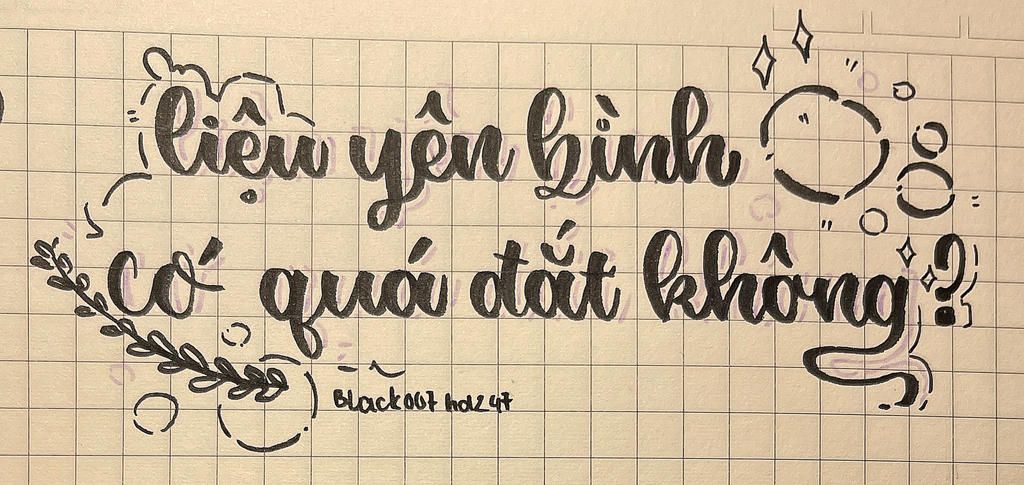 liệu yên bình
cớ quá đắt không?
Black007hd247